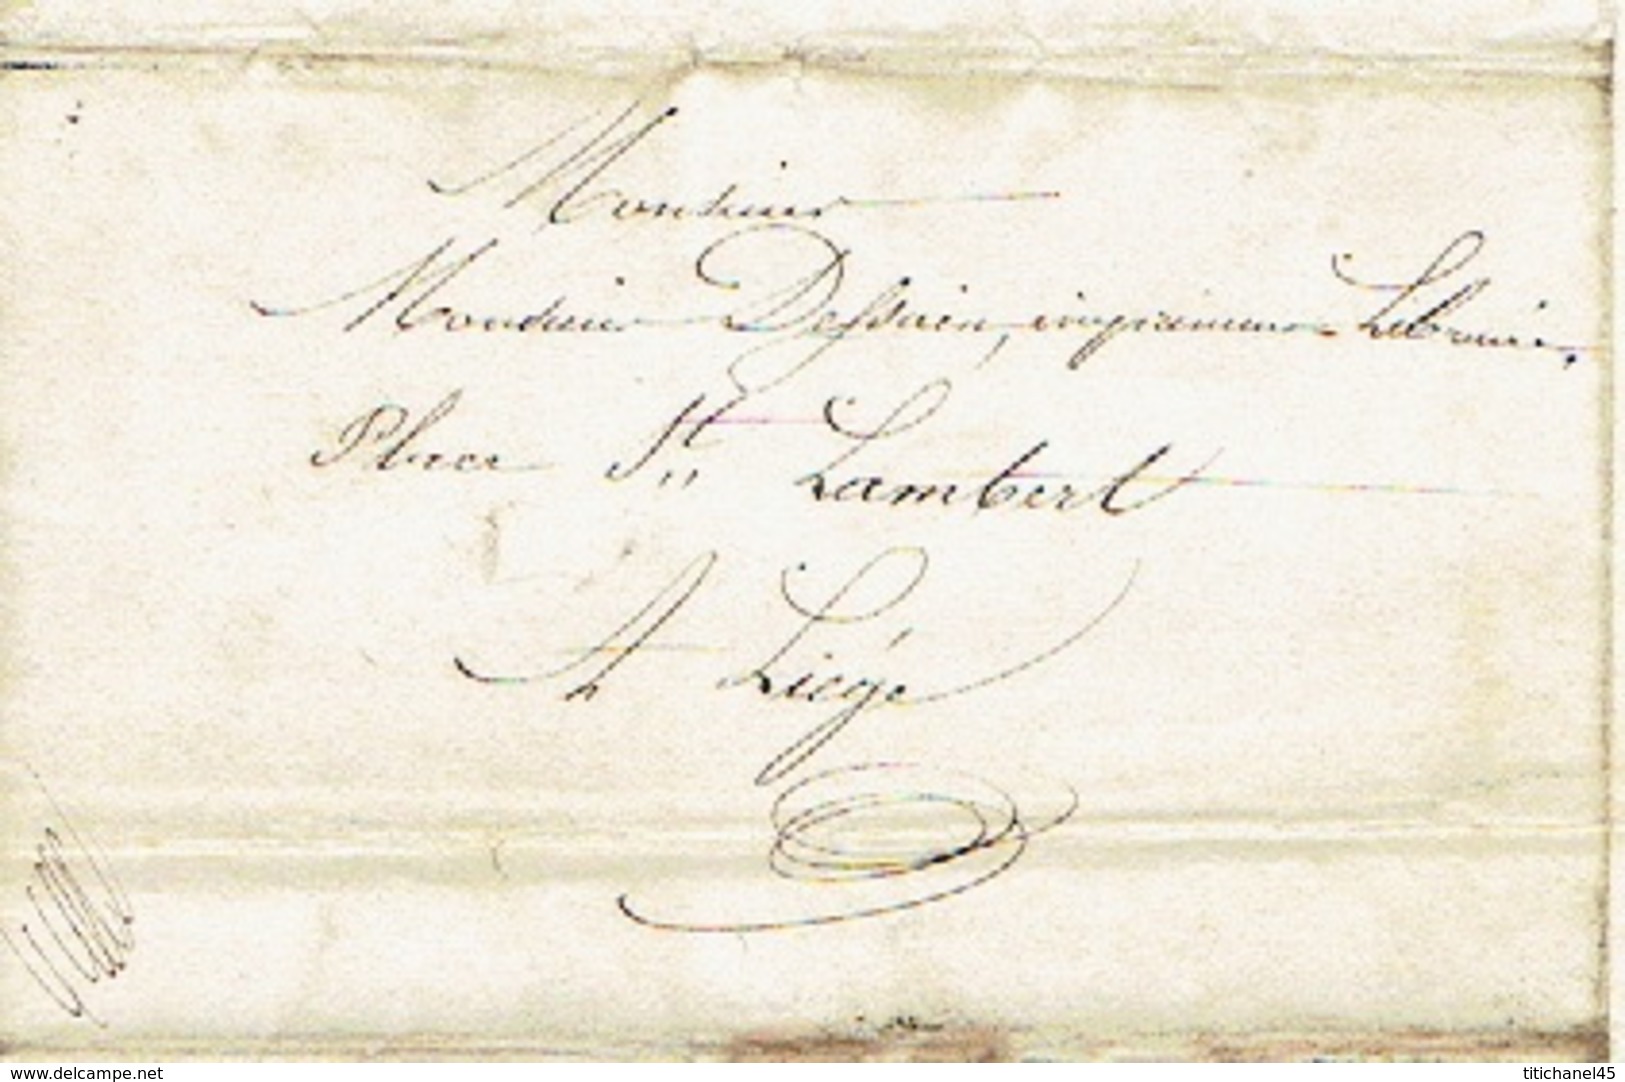 Monsieur
Monsieur Dessain, imprimeur Libraire,
Place St Lambert
A Liége
www.delcampe.net
titichanel45